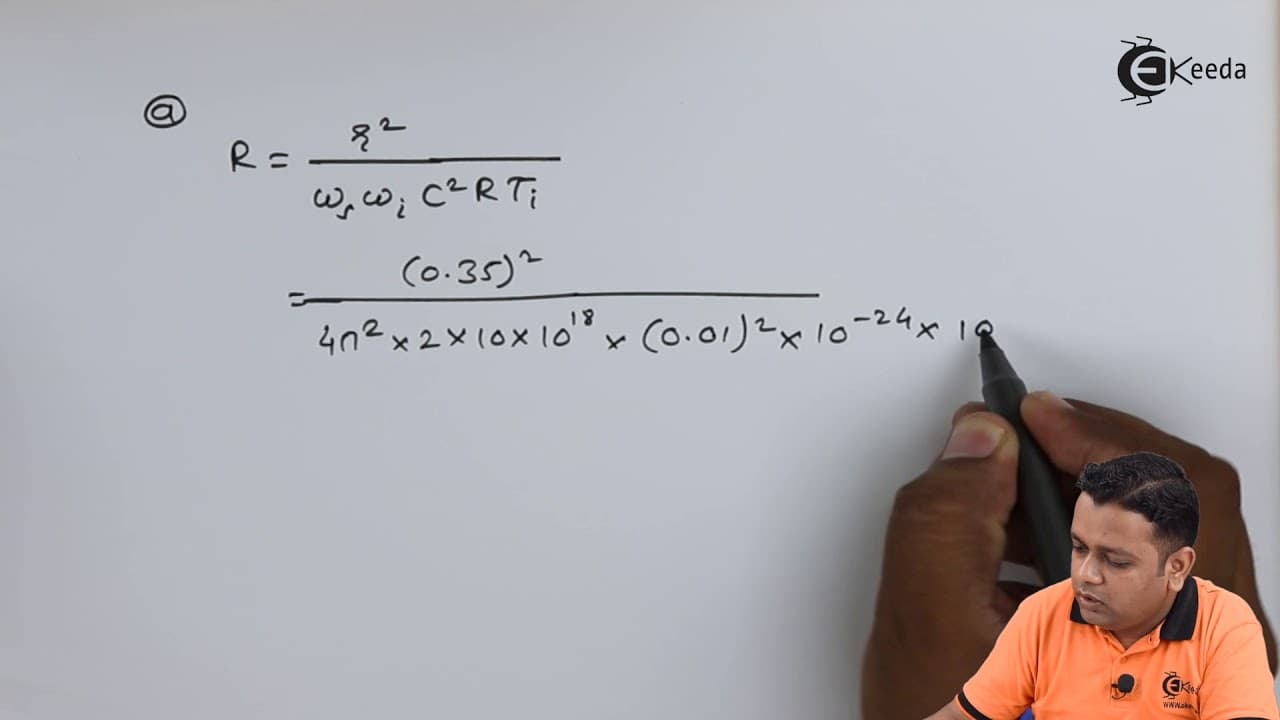 EKeeda
ⓐ
R = γ² / ωₛ ωᵢ C² R Tᵢ
= (0.35)² / 4π² × 2 × 10 × 10¹⁸ × (0.01)² × 10⁻²⁴ × 10
EKeeda